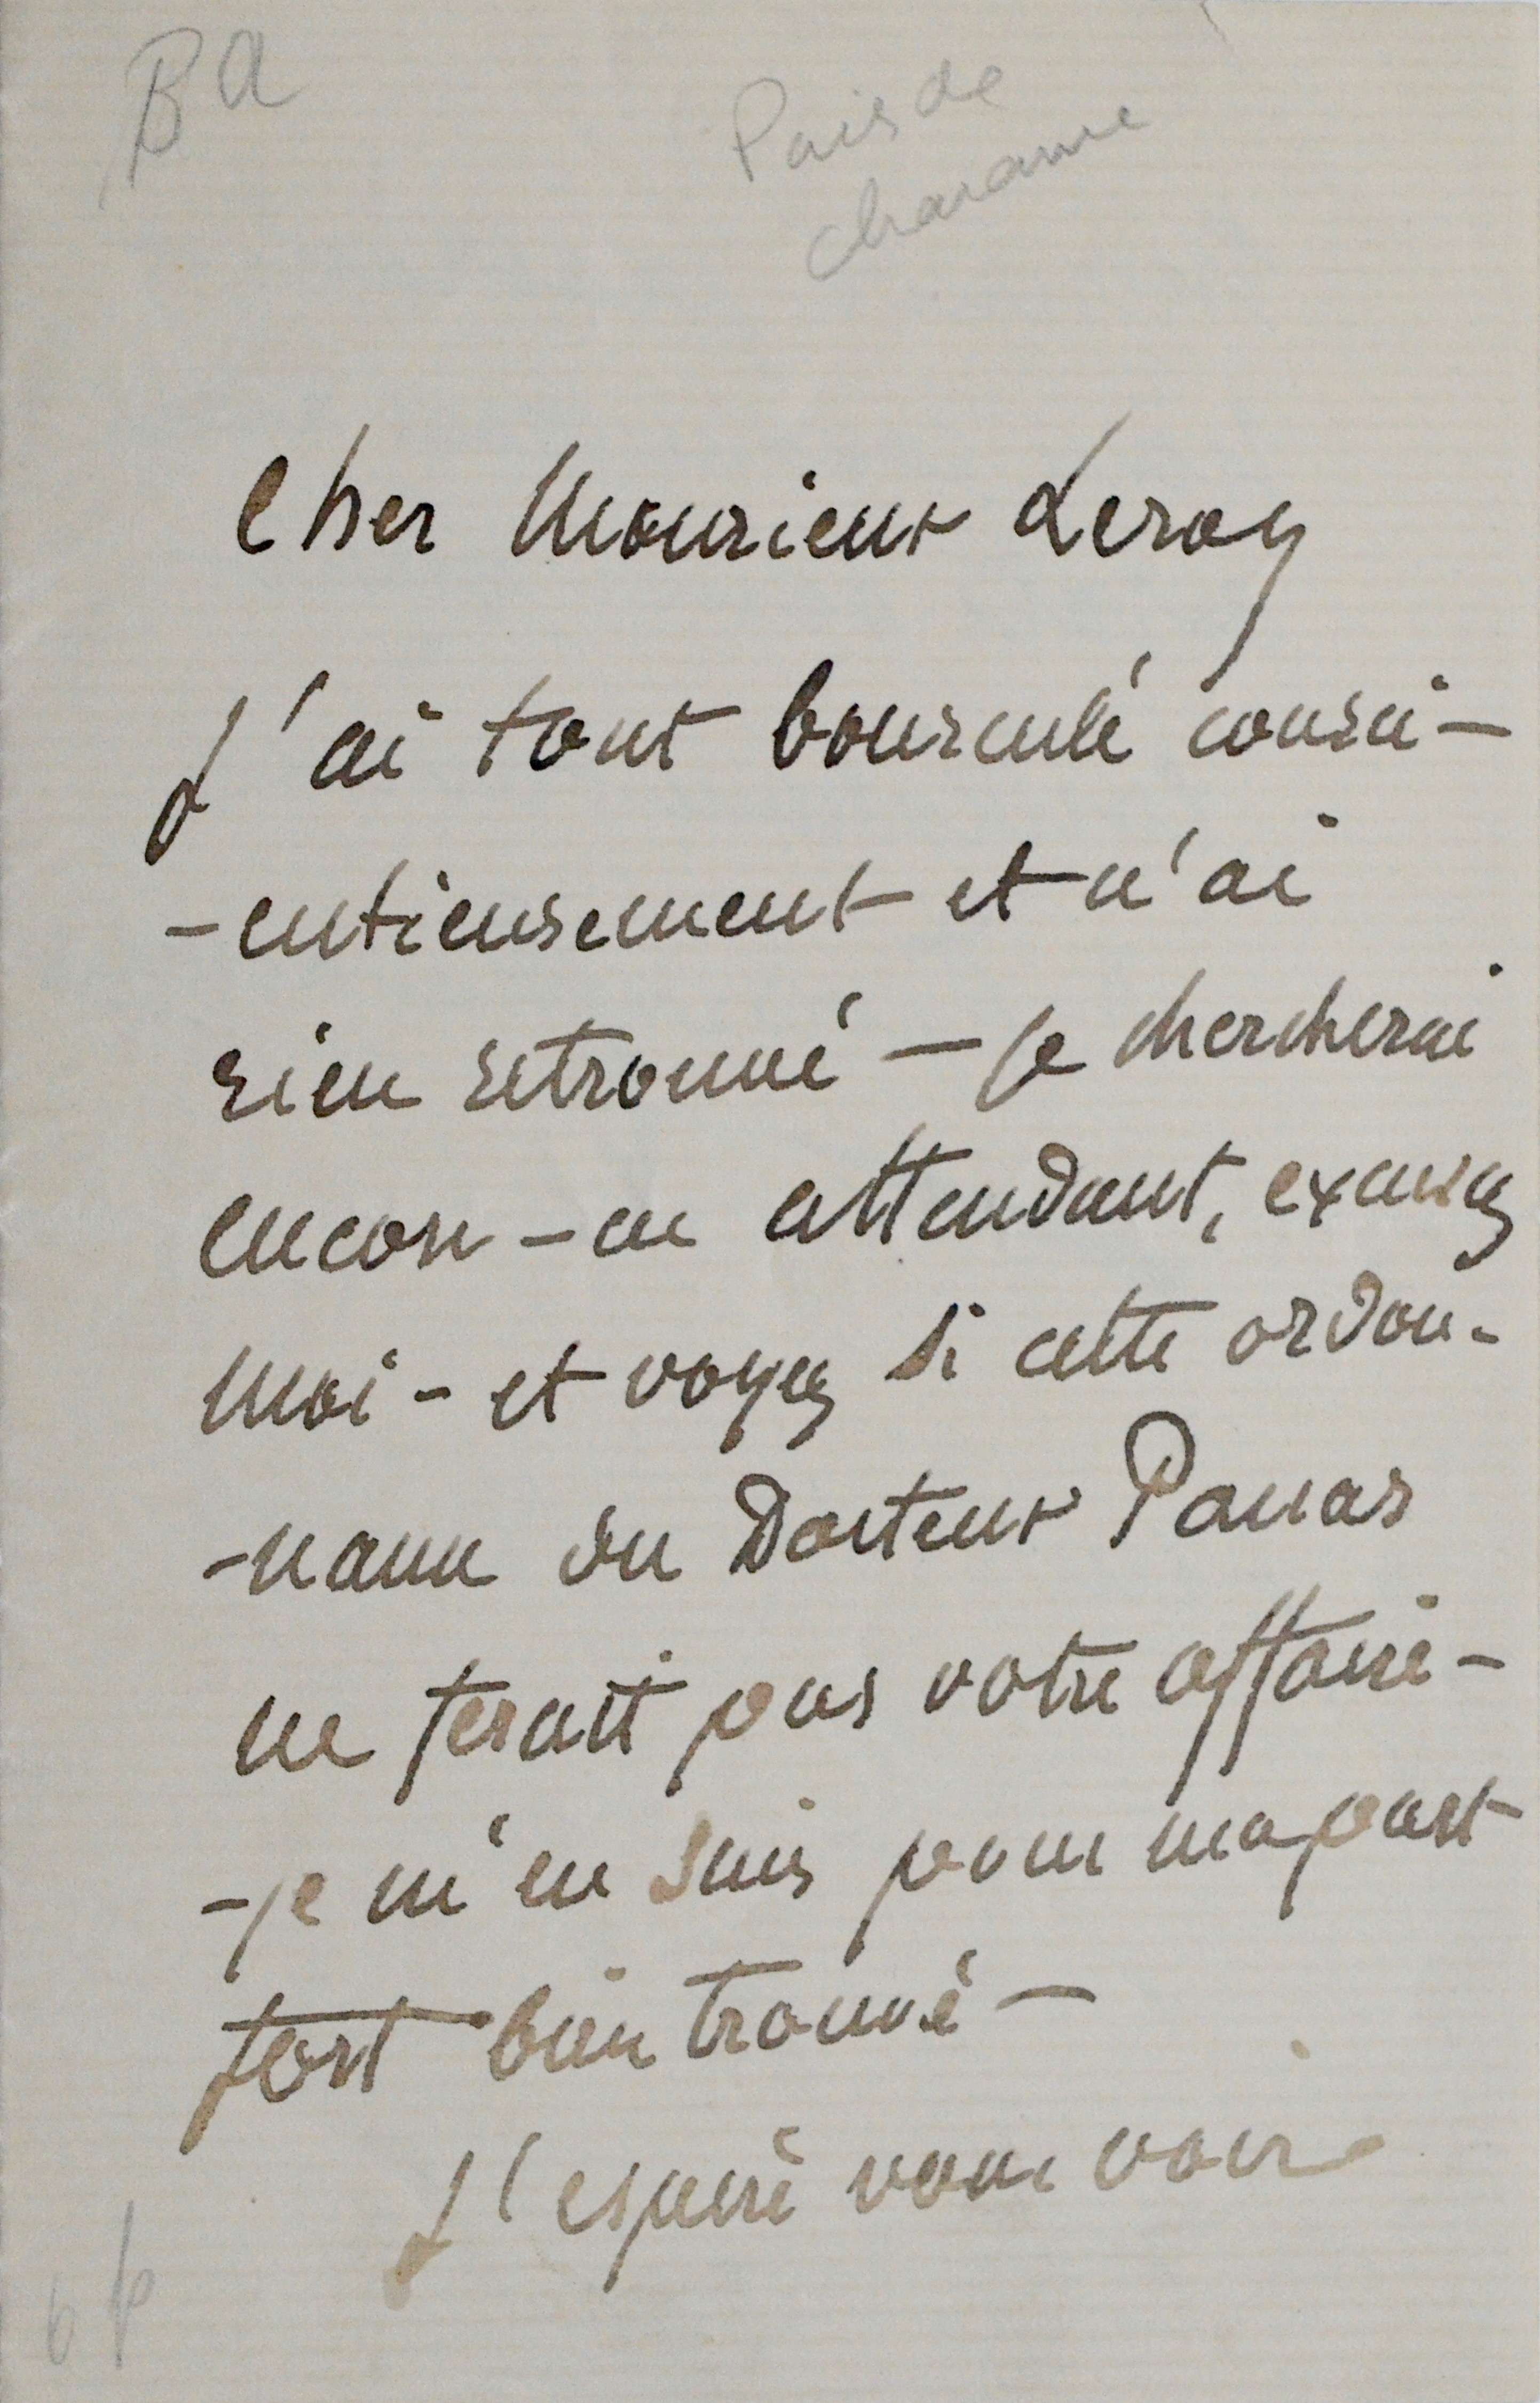 Ba
Puis de
Cher Monsieur Leroy
J'ai tout bousculé consci-
-entieusement et n'ai
rien retrouvé - je chercherai
encore - en attendant, excusez
moi - et voyez si cette ordon-
-nance du Docteur Panas
ne ferait pas votre affaire -
- je m'en suis pour ma part
fort bien trouvé -
J'espère vous voir